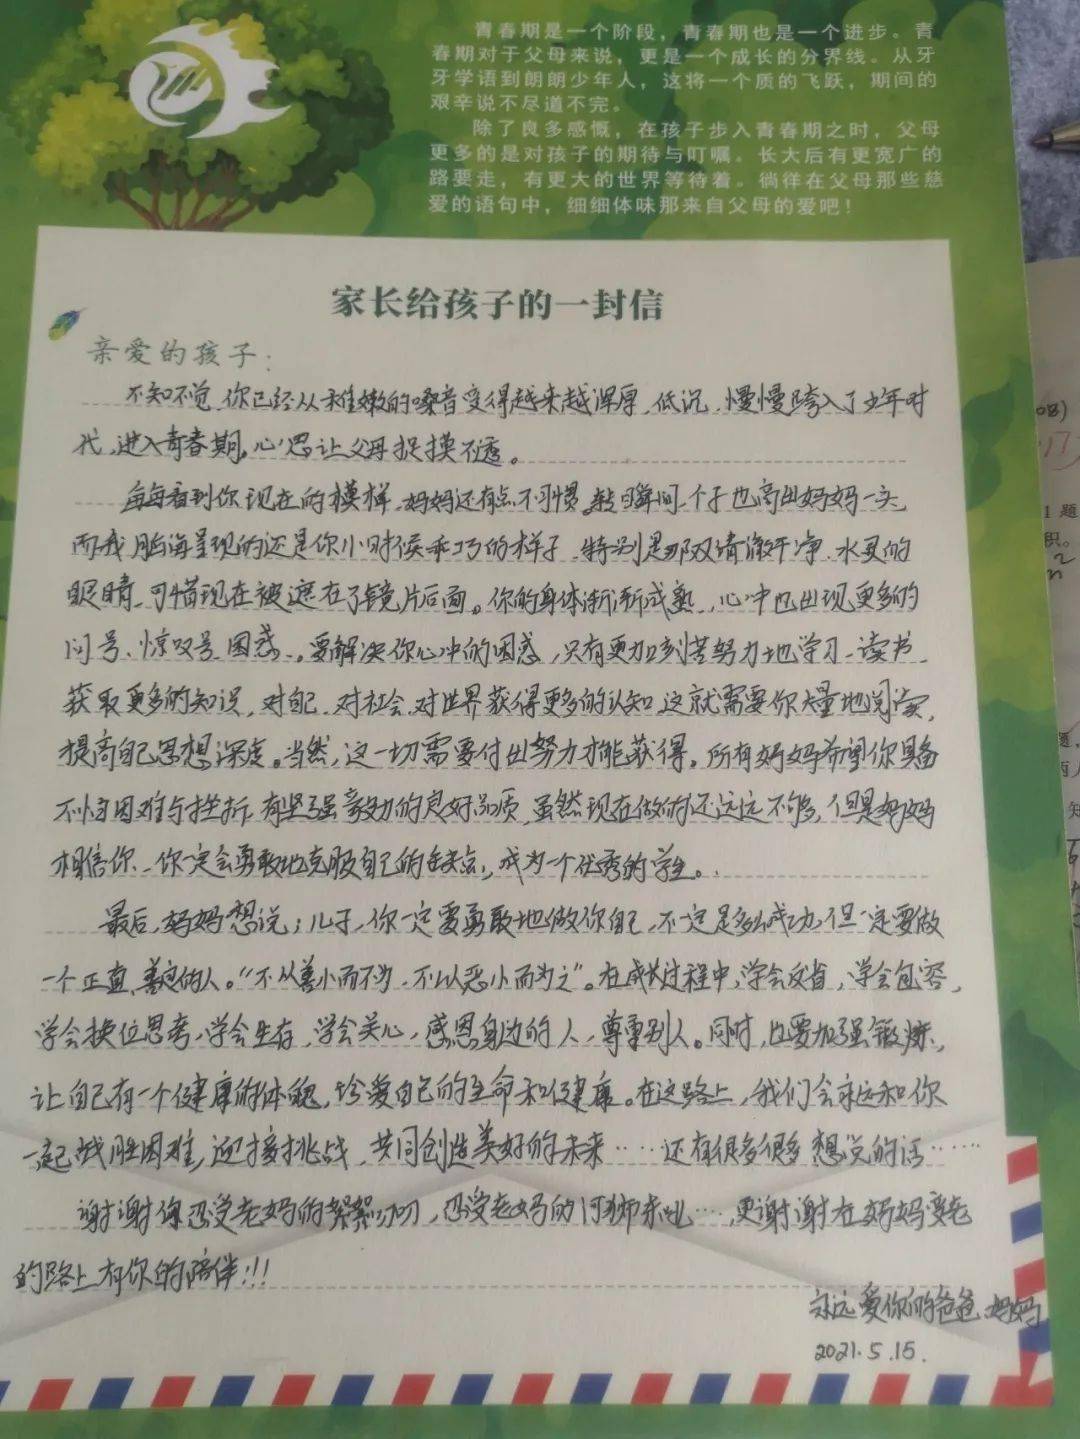 青春期是一个阶段，青春期也是一个进步。青
春期对于父母来说，更是一个成长的分界线。从牙
牙学语到朗朗少年人，这将一个质的飞跃，期间的
艰辛说不尽道不完。
除了良多感慨，在孩子步入青春期之时，父母
更多的是对孩子的期待与叮嘱。长大后有更宽广的
路要走，有更大的世界等待着。徜徉在父母那些慈
爱的语句中，细细体味那来自父母的爱吧！
家长给孩子的一封信
亲爱的孩子：
不知不觉，你已经从稚嫩的嗓音变得越来越浑厚、低沉，慢慢跨入了少年时
代，进入青春期，心思让父母捉摸不透。
每每看到你现在的模样，妈妈还有点不习惯。转瞬间，个子也高出妈妈一头
而我脑海呈现的还是你小时候乖巧的样子，特别是那双清澈干净、水灵的
眼睛，可惜现在被遮在了镜片后面。你的身体渐渐成熟，心中也出现更多的
问号、惊叹号、困惑。要解决你心中的困惑，只有更加刻苦努力地学习、读书，
获取更多的知识，对自己、对社会、对世界获得更多的认知，这就需要你大量地阅读，
提高自己思想深度。当然，这一切需要付出努力才能获得。所有妈妈希望你具备
不怕困难与挫折，有坚强毅力的良好品质，虽然现在做的还远远不够，但是妈妈
相信你，你一定会勇敢地克服自己的缺点，成为一个优秀的学生。
最后，妈妈想说：儿子，你一定要勇敢地做你自己，不一定是多么成功，但一定要做
一个正直、善良的人。“不以善小而不为，不以恶小而为之”。在成长过程中，学会反省，学会包容，
学会换位思考，学会生存，学会关心，感恩身边的人，尊重别人。同时，也要加强锻炼，
让自己有一个健康的体魄，珍爱自己的生命和健康。在这路上，我们会永远和你
一起战胜困难，迎接挑战，共同创造美好的未来……还有很多很多想说的话……
谢谢你忍受老妈的絮絮叨叨，忍受老妈的河狮东吼…，更谢谢在妈妈变老
的路上有你的陪伴！！！
永远爱你的爸爸 妈妈
2021.5.15.
08)
1 题
积。
题，
知